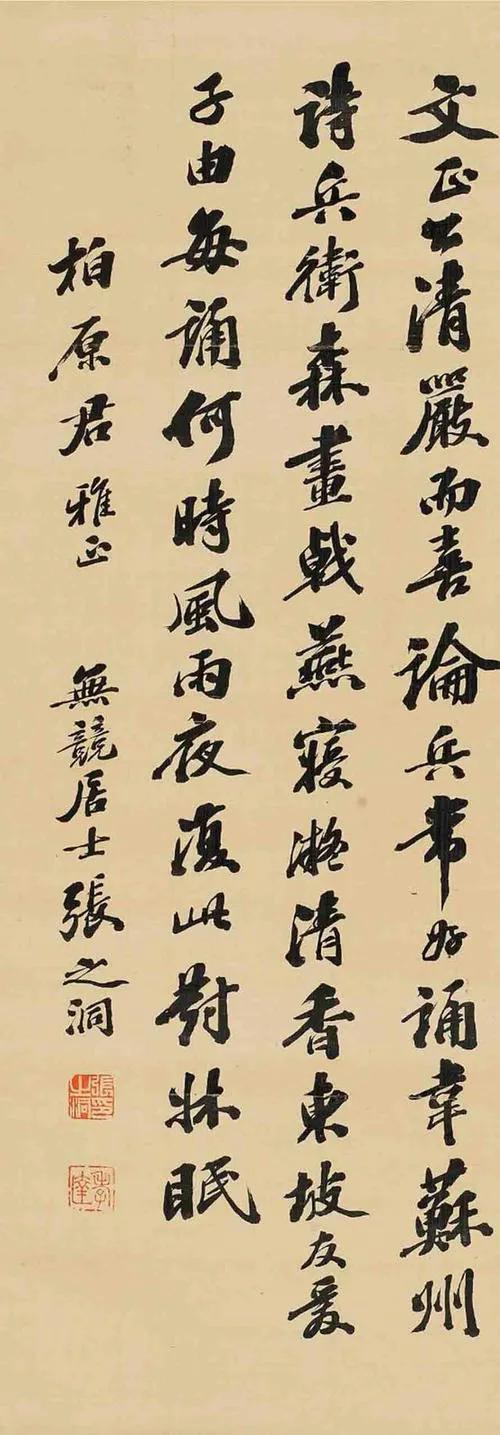 文正公清嚴而喜論兵常好誦韋蘇州
詩兵衛森畫戟燕寢凝清香東坡友愛
子由每誦何時風雨夜復此對牀眠
柏原君雅正
無競居士張之洞
張之洞印
孝達